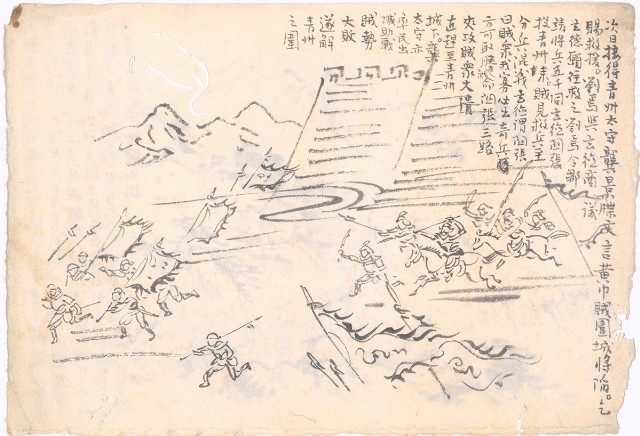 次日接得青州太守龔景牒文言黃巾賊圍城將陷。乞
賜救援。劉焉與玄德商議
玄德願往救之劉焉令鄒
靖將兵五千同玄德関張
投青州來賊見救兵至
分兵混战玄德謂関張
曰賊衆我寡必出奇兵
方可取勝関張三路
夾攻賊衆大潰
直趕至青州
城下。龔
太守亦
率民出
城助戰
賊勢
大敗
遂解
青州
之圍